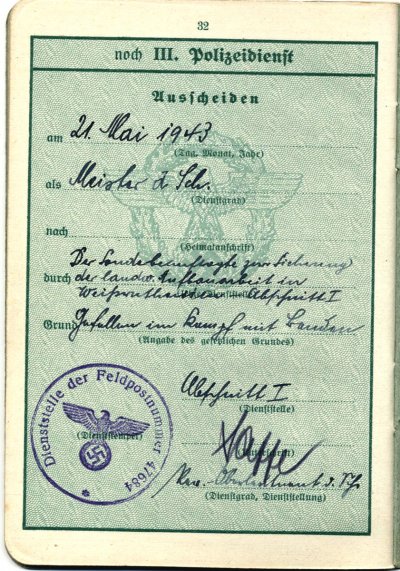 32
noch III. Polizeidienst
Ausscheiden
am 21. Mai 1943
(Tag, Monat, Jahr)
als Meister d. Sch.
(Dienstgrad)
nach
(Heimatanschrift)
Der Sonderbeauftragte zur Sicherung
durch der landw. Aufbauarbeit in
Weißruthenien Abschnitt I
(Dienststelle)
Grund Gefallen im Kampf mit Banden
(Angabe des gesetzlichen Grundes)
Abschnitt I
(Dienststelle)
Dienststelle der Feldpostnummer 47684
(Dienststempel)
Rev. Oberleutnant d. Sch.
(Dienstgrad, Dienststellung)